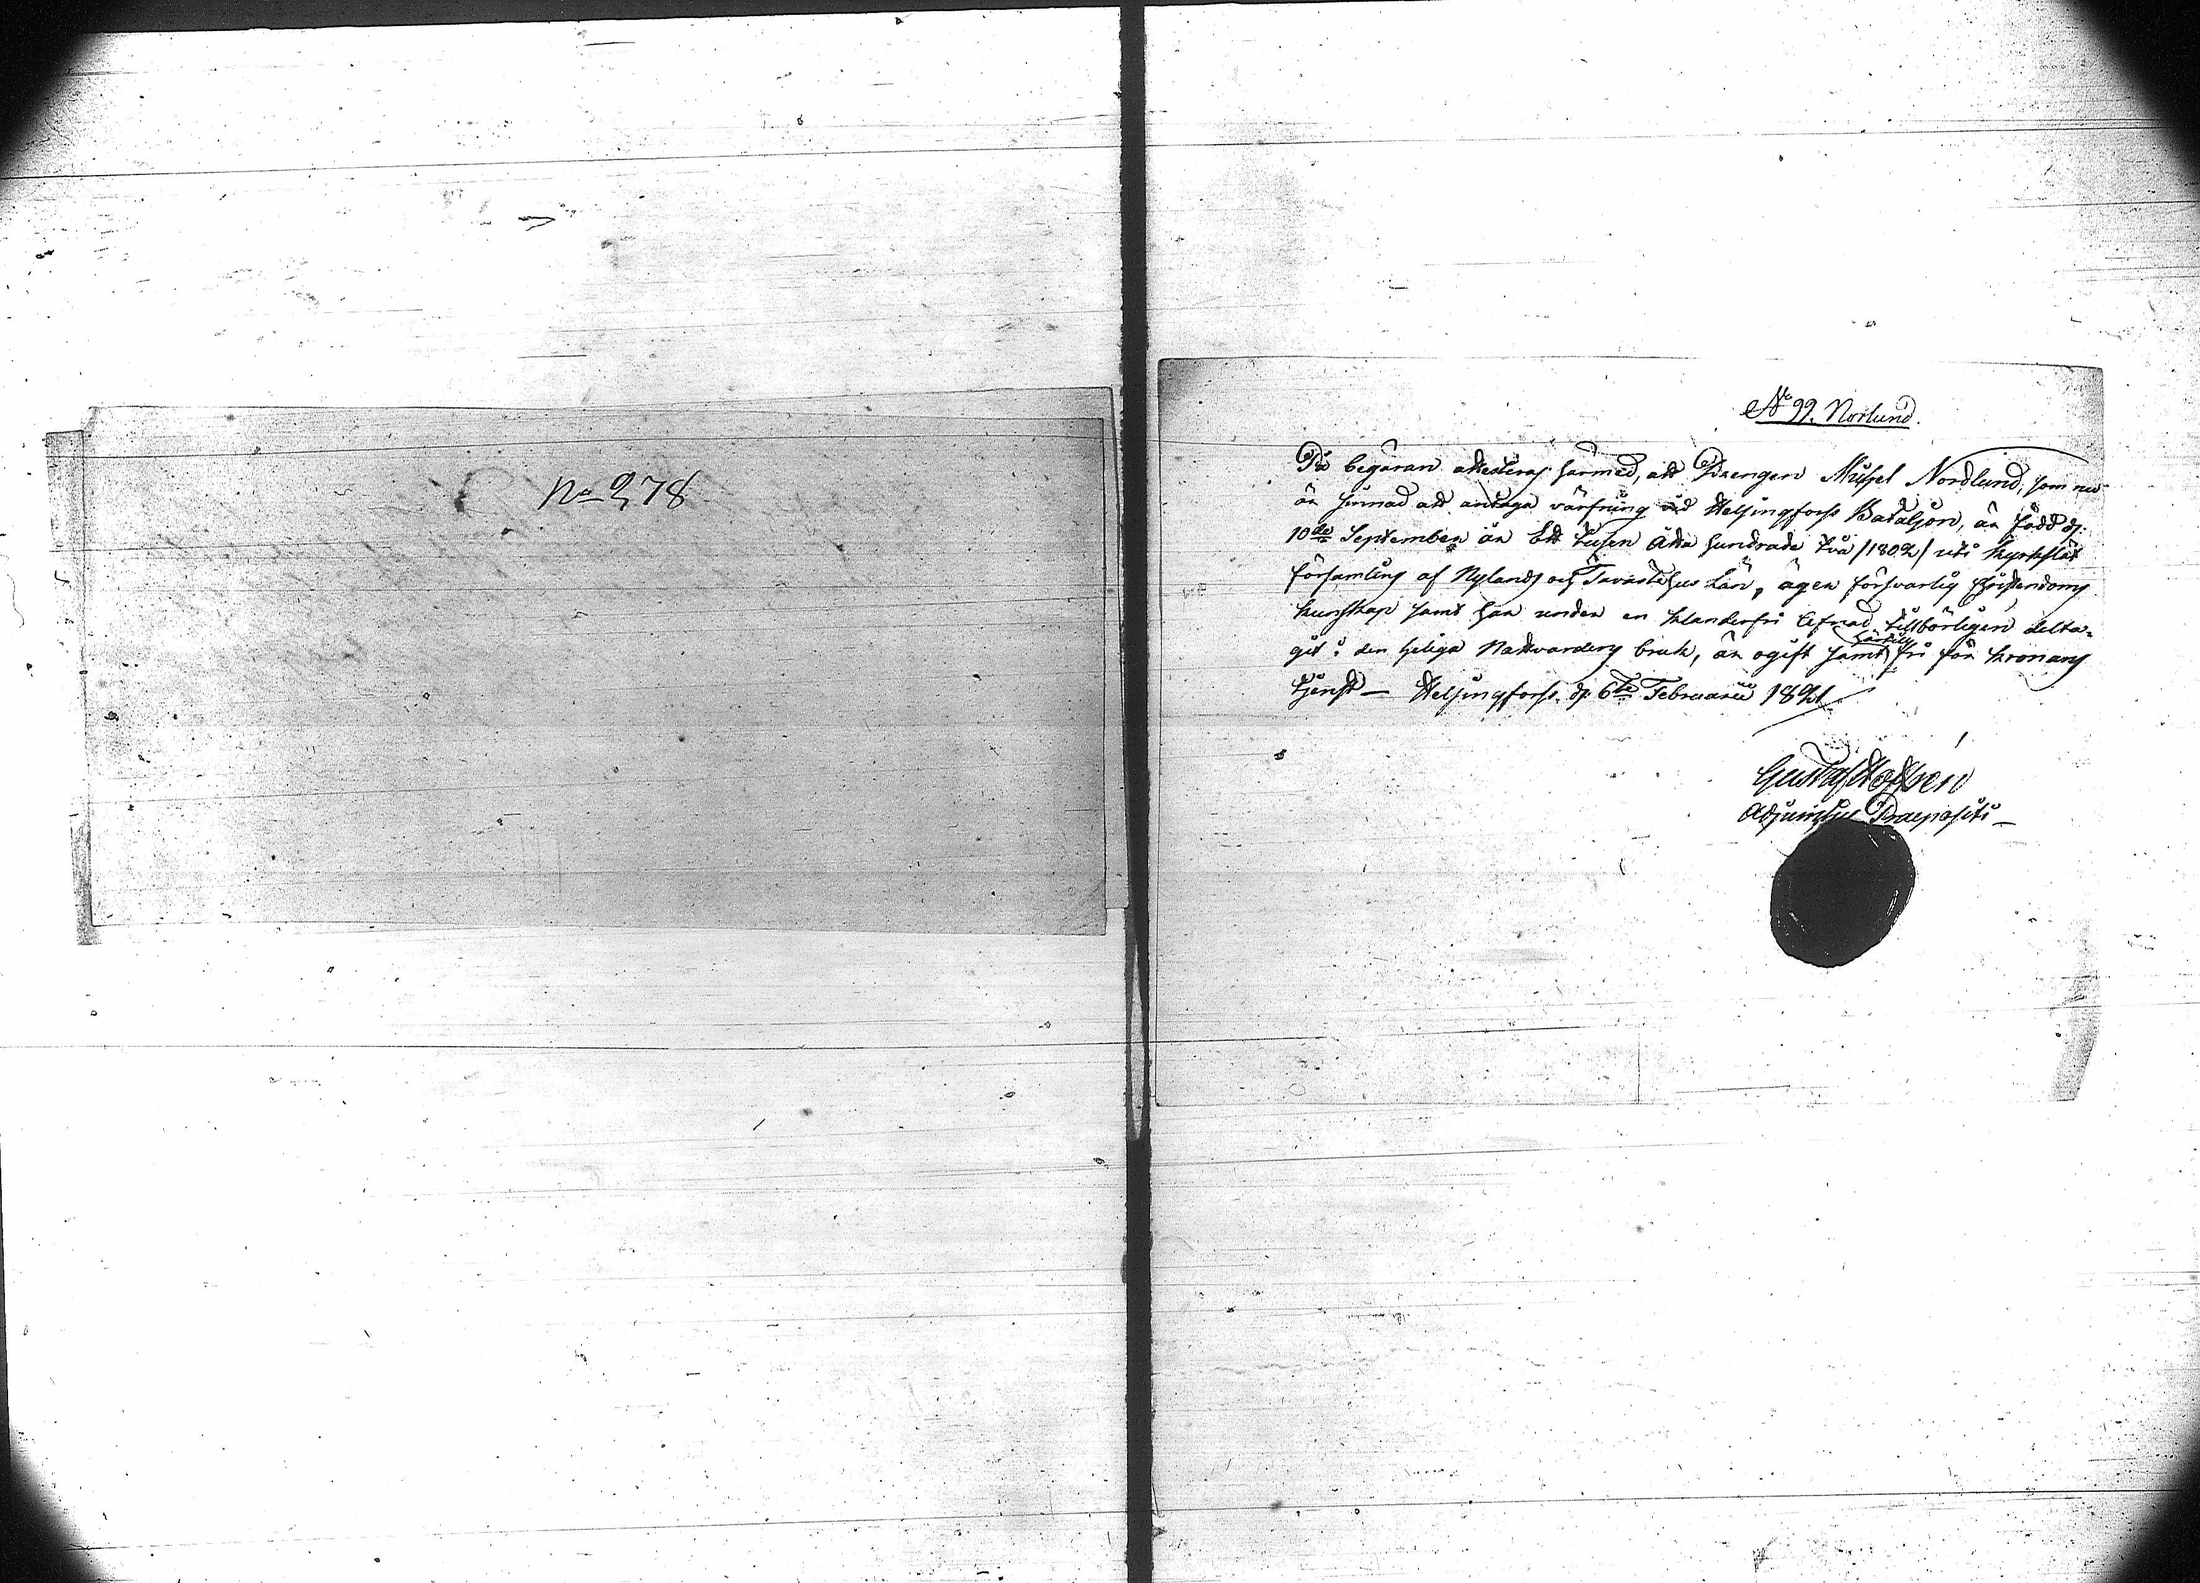 No 278
No 99. Norlund.
På begäran attesteras härmed, att Drengen Michel Nordlund, som nu
är sinnad att antaga värfning vid Helsingfors Bataljon, är född d:
10de September år Ett tusen åtta hundrade två /1802/ uti Kyrkslät
församling af Nylands och Tavastehus Län, äger försvarlig christendoms
kunskap samt har under en klanderfri lefnad tillbörligen delta-
git i den heliga Nattvardens bruk, är ogift samt härtills fri från Kronans
tjenst — Helsingfors d: 6te Februarii 1821
Gustaf
Adjunctus Praepositi